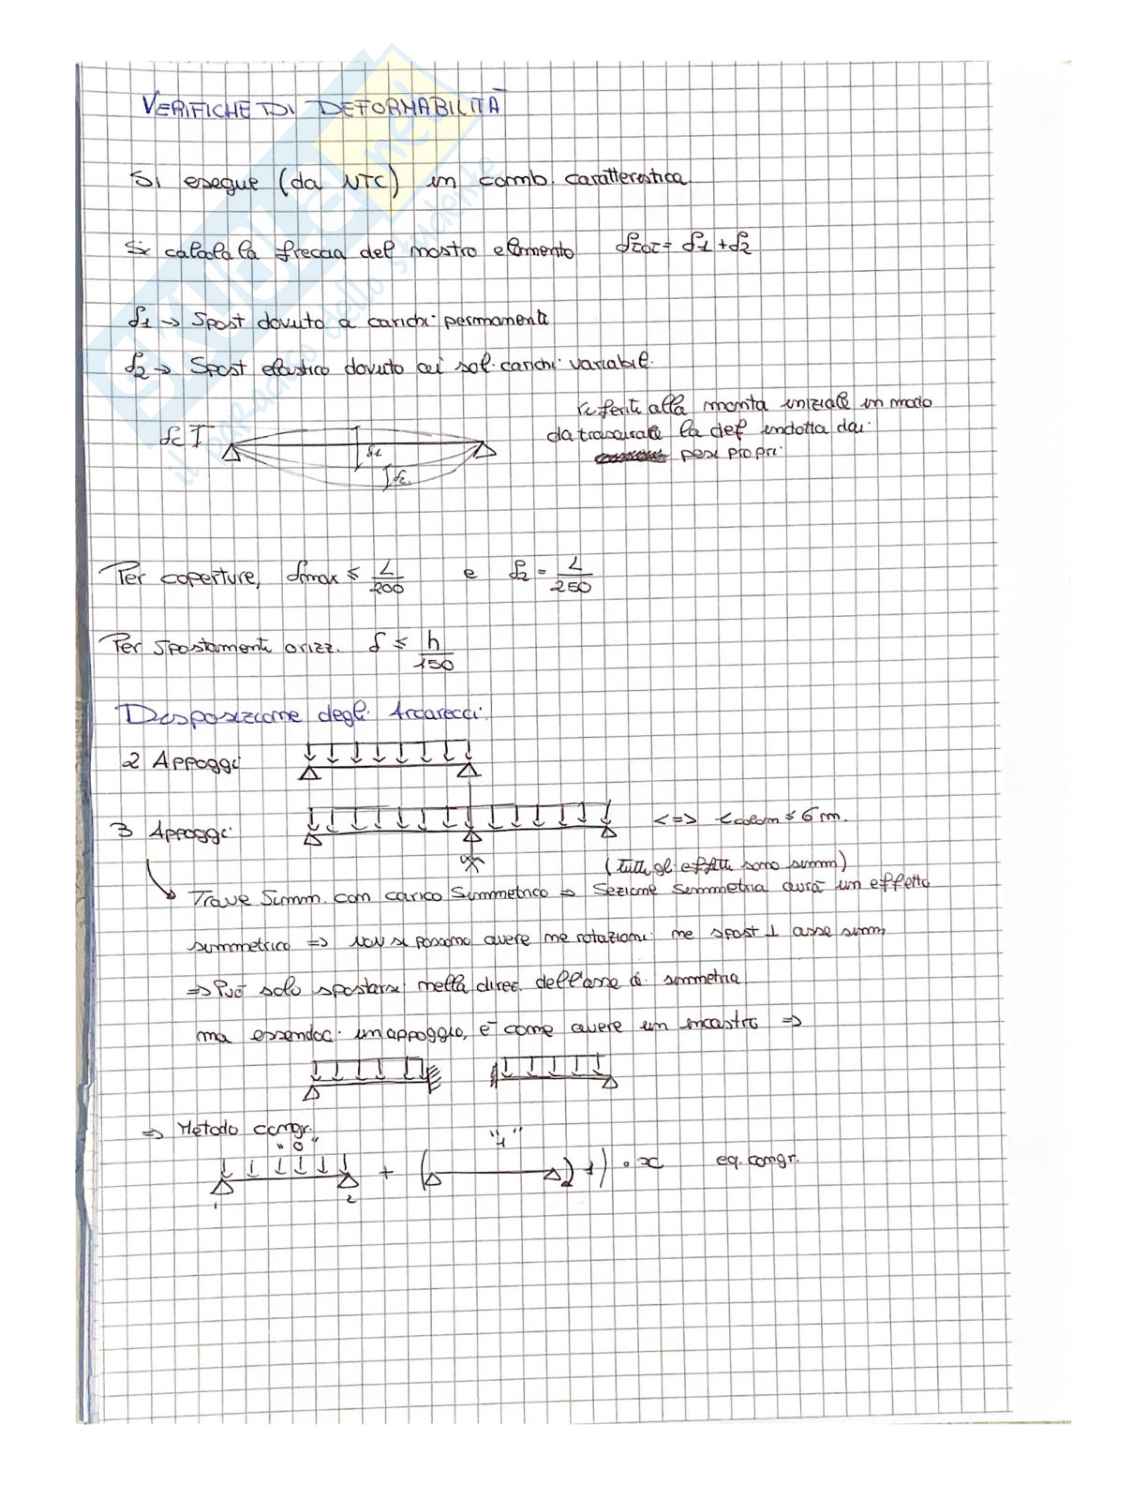 VERIFICHE DI DEFORMABILITÀ
Si esegue (da NTC) in comb. caratteristica
Si calcola la freccia del nostro elemento δtot = δ1 + δ2
δ1 → Spost dovuto a carichi permanenti
δ2 → Spost elastico dovuto ai soli carichi variabil.
riferiti alla monta iniziale in modo
da trascurare la def indotta dai
pesi propri
δc
δ1
δ2
Per coperture, δmax ≤ L/200 e δ2 = L/250
Per spostamenti orizz. δ ≤ h/150
Disposizione degli Arcarecci
2 Appoggi
3 Appoggi <=> ≤ 6 m.
(tutti gli effetti sono simm)
Trave Simm. con carico Simmetrico ⇒ Sezione Simmetria avrà un effetto
simmetrico ⇒ NON si possono avere ne rotazioni ne spost ⊥ asse simm,
⇒ Può solo spostarsi nella direz. dell'asse di simmetria
ma essendoci un appoggio, è come avere un incastro ⇒
⇒ Metodo congr.
"0" "1"
+ ( ) 1) · x eq. congr.
1 2
skuola.net
il paradiso dello studente